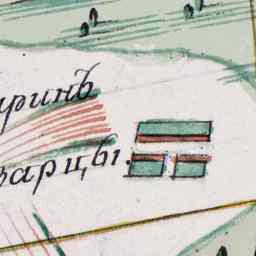 ринъ
варцы.